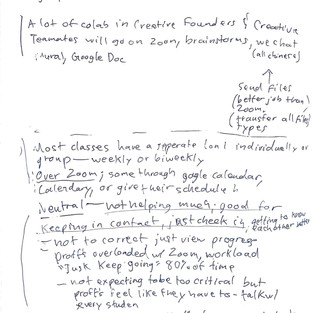 A lot of colab in Creative Founders & Creative
Teamates will go on Zoom, brainstorms, we chat
(all chinese)
Mural, Google Doc
Send files
(better job than)
Zoom.
(transfer all file)
types
Most classes have a seperate 1 on 1 individually or
group — weekly or biweekly
Over Zoom; some through gogle calendar,
Calendary, or give their schedule
Neutral — not helping much; good for
Keeping in contact, just check in, getting to know
each other
- not to correct, just view progress
proffs overloaded w/ Zoom, workload
"Just Keep going" 80% of time
- not expecting to be too critical but
proffs feel like they have to talk w/
every studen